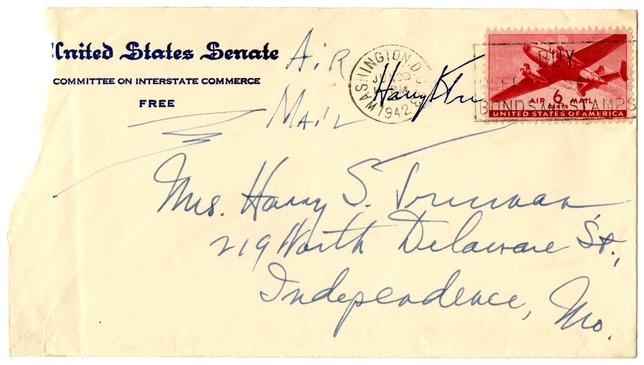 United States Senate
COMMITTEE ON INTERSTATE COMMERCE
FREE
Air
Mail
WASHINGTON, D.C.
1942
Harry
BUY
BONDS AND STAMPS
AIR 6 MAIL
CENTS
UNITED STATES OF AMERICA
Mrs. Harry S. Truman
219 North Delaware St.,
Independence, Mo.